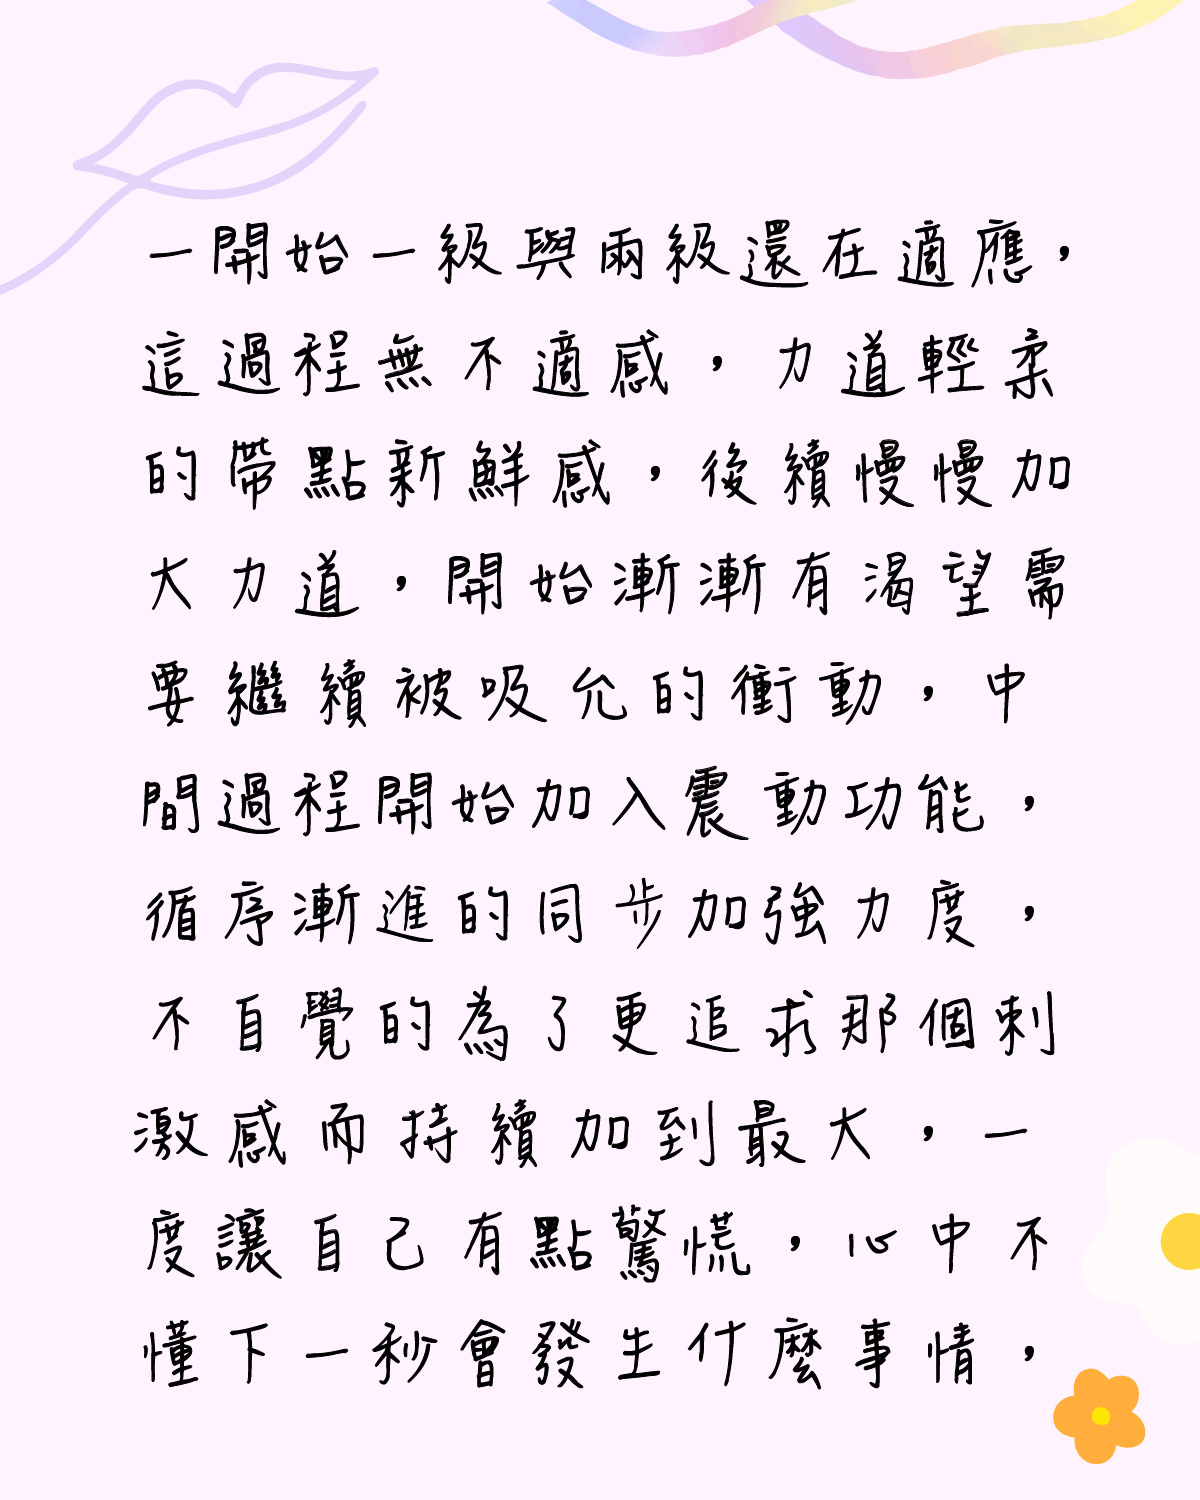 一開始一級與兩級還在適應，
這過程無不適感，力道輕柔
的帶點新鮮感，後續慢慢加
大力道，開始漸漸有渴望需
要繼續被吸允的衝動，中
間過程開始加入震動功能，
循序漸進的同步加強力度，
不自覺的為了更追求那個刺
激感而持續加到最大，一
度讓自己有點驚慌，心中不
懂下一秒會發生什麼事情，